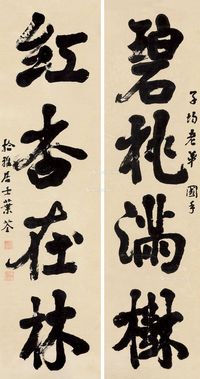 碧桃滿樹
子均老弟 國手
紅杏在林
拾雅居士葉荃